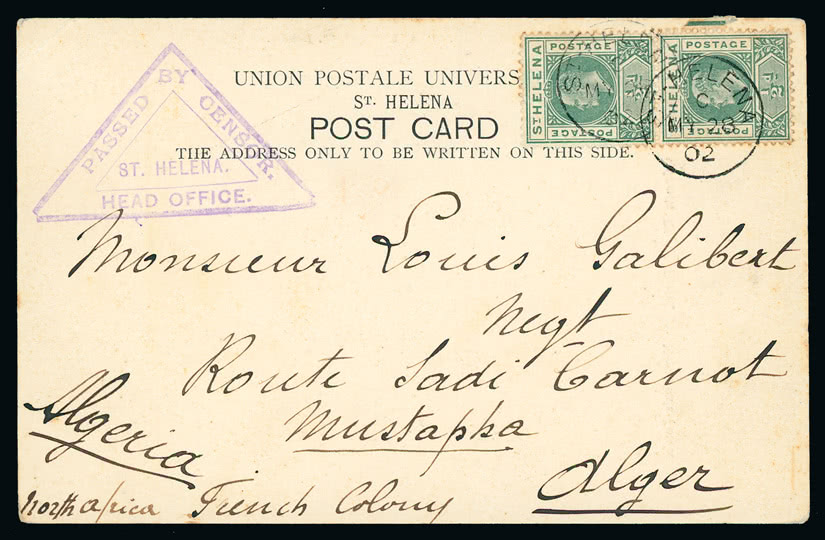 PASSED BY CENSOR.
ST. HELENA.
HEAD OFFICE.
UNION POSTALE UNIVERS
ST. HELENA
POST CARD
THE ADDRESS ONLY TO BE WRITTEN ON THIS SIDE.
POSTAGE
ST HELENA
POSTAGE
½d
POSTAGE
HELENA
POSTAGE
½d
ST. HELENA
C
MY 28
02
Monsieur Louis Galibert
Negt
Route Sadi Carnot
Mustapha
Alger
Algeria
North africa French Colony